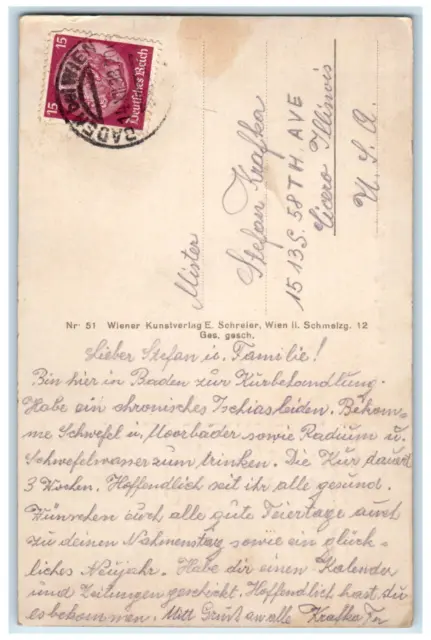 15
15
Deutsches Reich
BADEN BEI WIEN
Mister
Stefan Krafka
1513 S. 58TH. AVE
Cicero Illinois
U. S. A.
Nr. 51 Wiener Kunstverlag E. Schreier, Wien II. Schmelzg. 12
Ges. gesch.
Lieber Stefan u. Familie!
Bin hier in Baden zur Kurbehandlung.
Habe ein chronisches Ischiasleiden. Bekom-
me Schwefel u. Moorbäder sowie Radium u.
Schwefelwasser zum trinken. Die Kur dauert
3 Wochen. Hoffendlich seit ihr alle gesund.
Wünschen euch alle gute Feiertage auch
zu deinen Nahmenstag sowie ein glück-
liches Neujahr. Habe dir einen Kalender
und Zeitungen geschickt. Hoffendlich hast du
es bekommen. Mitt Gruß an alle Krafka